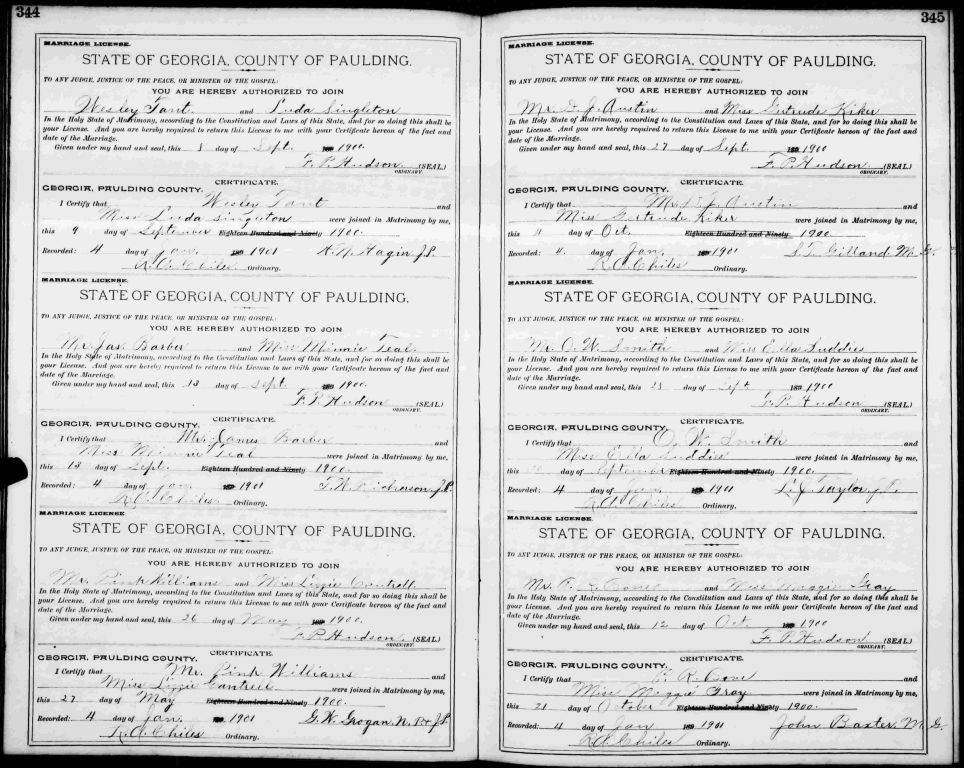 344
MARRIAGE LICENSE.
STATE OF GEORGIA, COUNTY OF PAULDING.
TO ANY JUDGE, JUSTICE OF THE PEACE, OR MINISTER OF THE GOSPEL:
YOU ARE HEREBY AUTHORIZED TO JOIN
Wesley Tant and Luda Singleton
In the Holy State of Matrimony, according to the Constitution and Laws of this State, and for so doing this shall be
your License. And you are hereby required to return this License to me with your Certificate hereon of the fact and
date of the Marriage.
Given under my hand and seal, this 8 day of Sept. 1900
F. P. Hudson (SEAL)
ORDINARY.
CERTIFICATE.
GEORGIA, PAULDING COUNTY.
I Certify that Wesley Tant and
Miss Luda Singleton were joined in Matrimony by me,
this 9 day of September Eighteen Hundred and Ninety 1900.
Recorded: 4 day of Jan. 1901 H. N. Hagin J.P.
R. A. Chiles Ordinary.
MARRIAGE LICENSE.
STATE OF GEORGIA, COUNTY OF PAULDING.
TO ANY JUDGE, JUSTICE OF THE PEACE, OR MINISTER OF THE GOSPEL:
YOU ARE HEREBY AUTHORIZED TO JOIN
Mr. Jas. Barber and Miss Minnie Teal
In the Holy State of Matrimony, according to the Constitution and Laws of this State, and for so doing this shall be
your License. And you are hereby required to return this License to me with your Certificate hereon of the fact and
date of the Marriage.
Given under my hand and seal, this 13 day of Sept 1900.
F. P. Hudson (SEAL)
ORDINARY.
CERTIFICATE.
GEORGIA, PAULDING COUNTY.
I Certify that Mr. James Barber and
Miss Minnie Teal were joined in Matrimony by me,
this 13 day of Sept. Eighteen Hundred and Ninety 1900.
Recorded: 4 day of Jan. 1901 J.P.
R. A. Chiles Ordinary.
MARRIAGE LICENSE.
STATE OF GEORGIA, COUNTY OF PAULDING.
TO ANY JUDGE, JUSTICE OF THE PEACE, OR MINISTER OF THE GOSPEL:
YOU ARE HEREBY AUTHORIZED TO JOIN
Mr. Pink Williams and Miss Lizzie Cantrell
In the Holy State of Matrimony, according to the Constitution and Laws of this State, and for so doing this shall be
your License. And you are hereby required to return this License to me with your Certificate hereon of the fact and
date of the Marriage.
Given under my hand and seal, this 26 day of May 1900.
F. P. Hudson (SEAL)
ORDINARY.
CERTIFICATE.
GEORGIA, PAULDING COUNTY.
I Certify that Mr. Pink Williams and
Miss Lizzie Cantrell were joined in Matrimony by me,
this 27 day of May Eighteen Hundred and Ninety 1900.
Recorded: 4 day of Jan. 1901 G. W. Grogan, N. P. & J.P.
R. A. Chiles Ordinary.
345
MARRIAGE LICENSE.
STATE OF GEORGIA, COUNTY OF PAULDING.
TO ANY JUDGE, JUSTICE OF THE PEACE, OR MINISTER OF THE GOSPEL:
YOU ARE HEREBY AUTHORIZED TO JOIN
Mr. D. J. Austin and Miss Gertrude Kiker
In the Holy State of Matrimony, according to the Constitution and Laws of this State, and for so doing this shall be
your License. And you are hereby required to return this License to me with your Certificate hereon of the fact and
date of the Marriage.
Given under my hand and seal, this 27 day of Sept 1900
F. P. Hudson (SEAL)
ORDINARY.
CERTIFICATE.
GEORGIA, PAULDING COUNTY.
I Certify that Mr. D. J. Austin and
Miss Gertrude Kiker were joined in Matrimony by me,
this 11 day of Oct. Eighteen Hundred and Ninety 1900.
Recorded: 4. day of Jan. 1901 S. T. Gilland M. G.
R. A. Chiles Ordinary.
MARRIAGE LICENSE.
STATE OF GEORGIA, COUNTY OF PAULDING.
TO ANY JUDGE, JUSTICE OF THE PEACE, OR MINISTER OF THE GOSPEL:
YOU ARE HEREBY AUTHORIZED TO JOIN
Mr. O. W. Smith and Miss Ella Suddies
In the Holy State of Matrimony, according to the Constitution and Laws of this State, and for so doing this shall be
your License. And you are hereby required to return this License to me with your Certificate hereon of the fact and
date of the Marriage.
Given under my hand and seal, this 28 day of Sept 1900
F. P. Hudson (SEAL)
ORDINARY.
CERTIFICATE.
GEORGIA, PAULDING COUNTY.
I Certify that O. W. Smith and
Miss Ella Suddies were joined in Matrimony by me,
this day of September Eighteen Hundred and Ninety 1900.
Recorded: 4 day of Jan. 1901 L. J. Taylor, J.P.
R. A. Chiles Ordinary.
MARRIAGE LICENSE.
STATE OF GEORGIA, COUNTY OF PAULDING.
TO ANY JUDGE, JUSTICE OF THE PEACE, OR MINISTER OF THE GOSPEL:
YOU ARE HEREBY AUTHORIZED TO JOIN
Mr. R. Cone and Miss Maggie Gray
In the Holy State of Matrimony, according to the Constitution and Laws of this State, and for so doing this shall be
your License. And you are hereby required to return this License to me with your Certificate hereon of the fact and
date of the Marriage.
Given under my hand and seal, this 12 day of Oct 1900
F. P. Hudson (SEAL)
ORDINARY.
CERTIFICATE.
GEORGIA, PAULDING COUNTY.
I Certify that R. Cone and
Miss Maggie Gray were joined in Matrimony by me,
this 21 day of October Eighteen Hundred and Ninety 1900.
Recorded: 4 day of Jan 1901 John Baxter, M. G.
R. A. Chiles Ordinary.